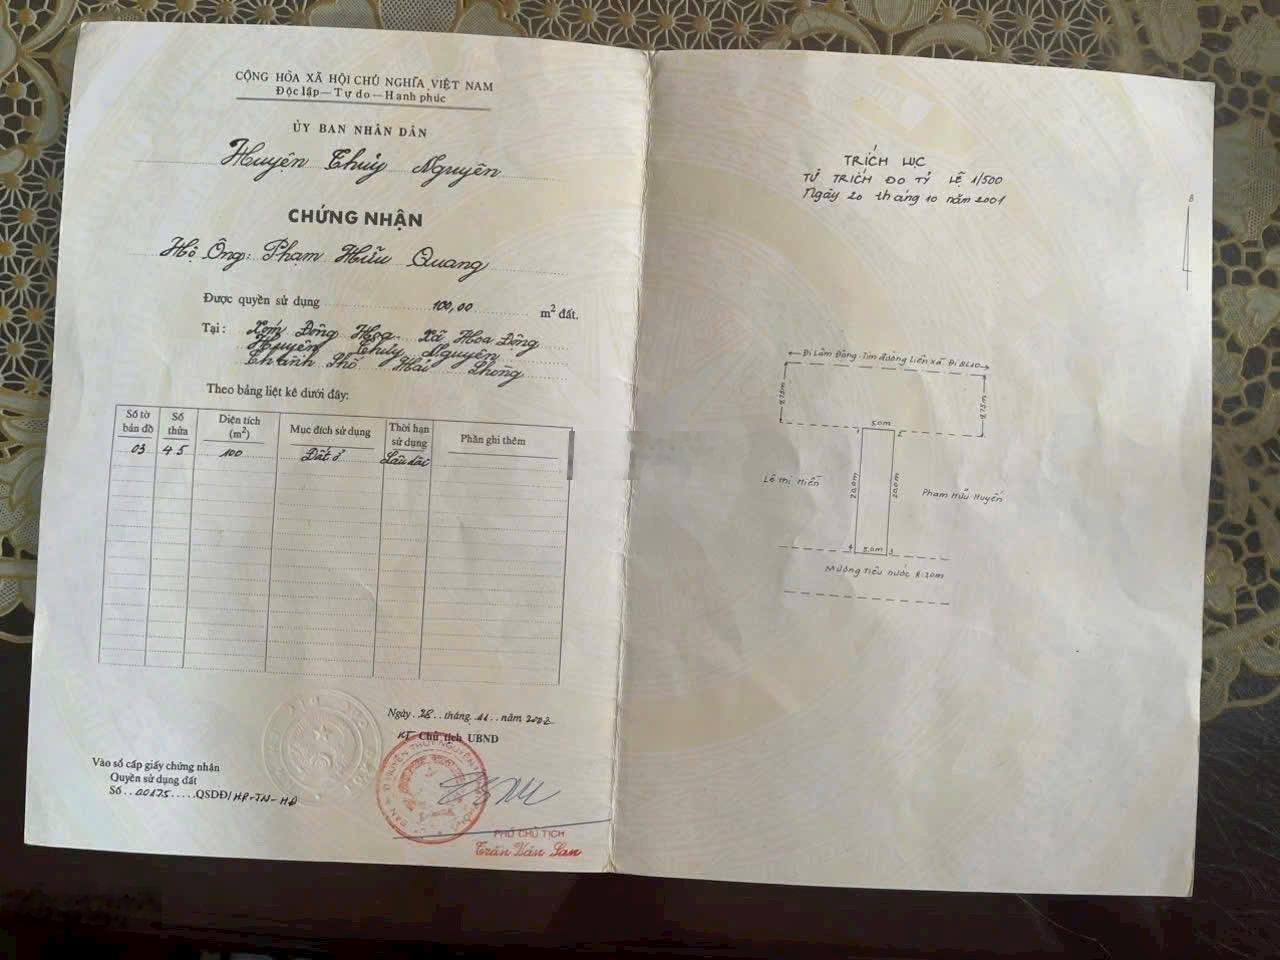 CỘNG HÒA XÃ HỘI CHỦ NGHĨA VIỆT NAM
Độc lập — Tự do — Hạnh phúc
ỦY BAN NHÂN DÂN
Huyện Thủy Nguyên
CHỨNG NHẬN
Hộ Ông: Phạm Hữu Quang
Được quyền sử dụng 100,00 m² đất.
Tại: Xóm Đông Hoa Xã Hoa Động
Huyện Thủy Nguyên
Thành Phố Hải Phòng
Theo bảng liệt kê dưới đây:
Số tờ bản đồ Số thửa Diện tích (m²) Mục đích sử dụng Thời hạn sử dụng Phần ghi thêm
03 45 100 Đất ở Lâu dài
Ngày 28 tháng 11 năm 2002
KT Chủ tịch UBND
Vào sổ cấp giấy chứng nhận
Quyền sử dụng đất
Số 00175 QSDĐ/HP-TN-HĐ
PHÓ CHỦ TỊCH
Trần Văn San
TRÍCH LỤC
TỪ TRÍCH ĐO TỶ LỆ 1/500
Ngày 20 tháng 10 năm 2001
B
Đi Lâm Động Tim đường liên xã Đi QL10
9,75m
9,75m
5.0m
1 2
20,0m
20,0m
Lê Thị Hiền
Phạm Hữu Huyến
4 5.0m 3
Mương tiêu nước R:20m